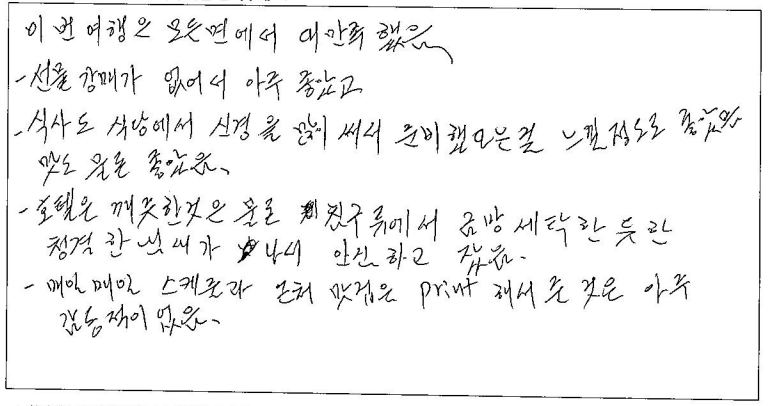 이번 여행은 모든면에서 대만족 했음.
- 선물 강매가 없어서 아주 좋았고
- 식사도 식당에서 신경을 많이 써서 준비했음은걸 느낄정도로 좋았으며
맛도 물론 좋았음.
- 호텔은 깨끗한것은 물론 침구류에서 금방 세탁한 듯한
청결한 냄새가 나서 안심하고 잤음.
- 매일매일 스케줄과 근처 맛집은 print 해서 준 것은 아주
감동적이 없음.